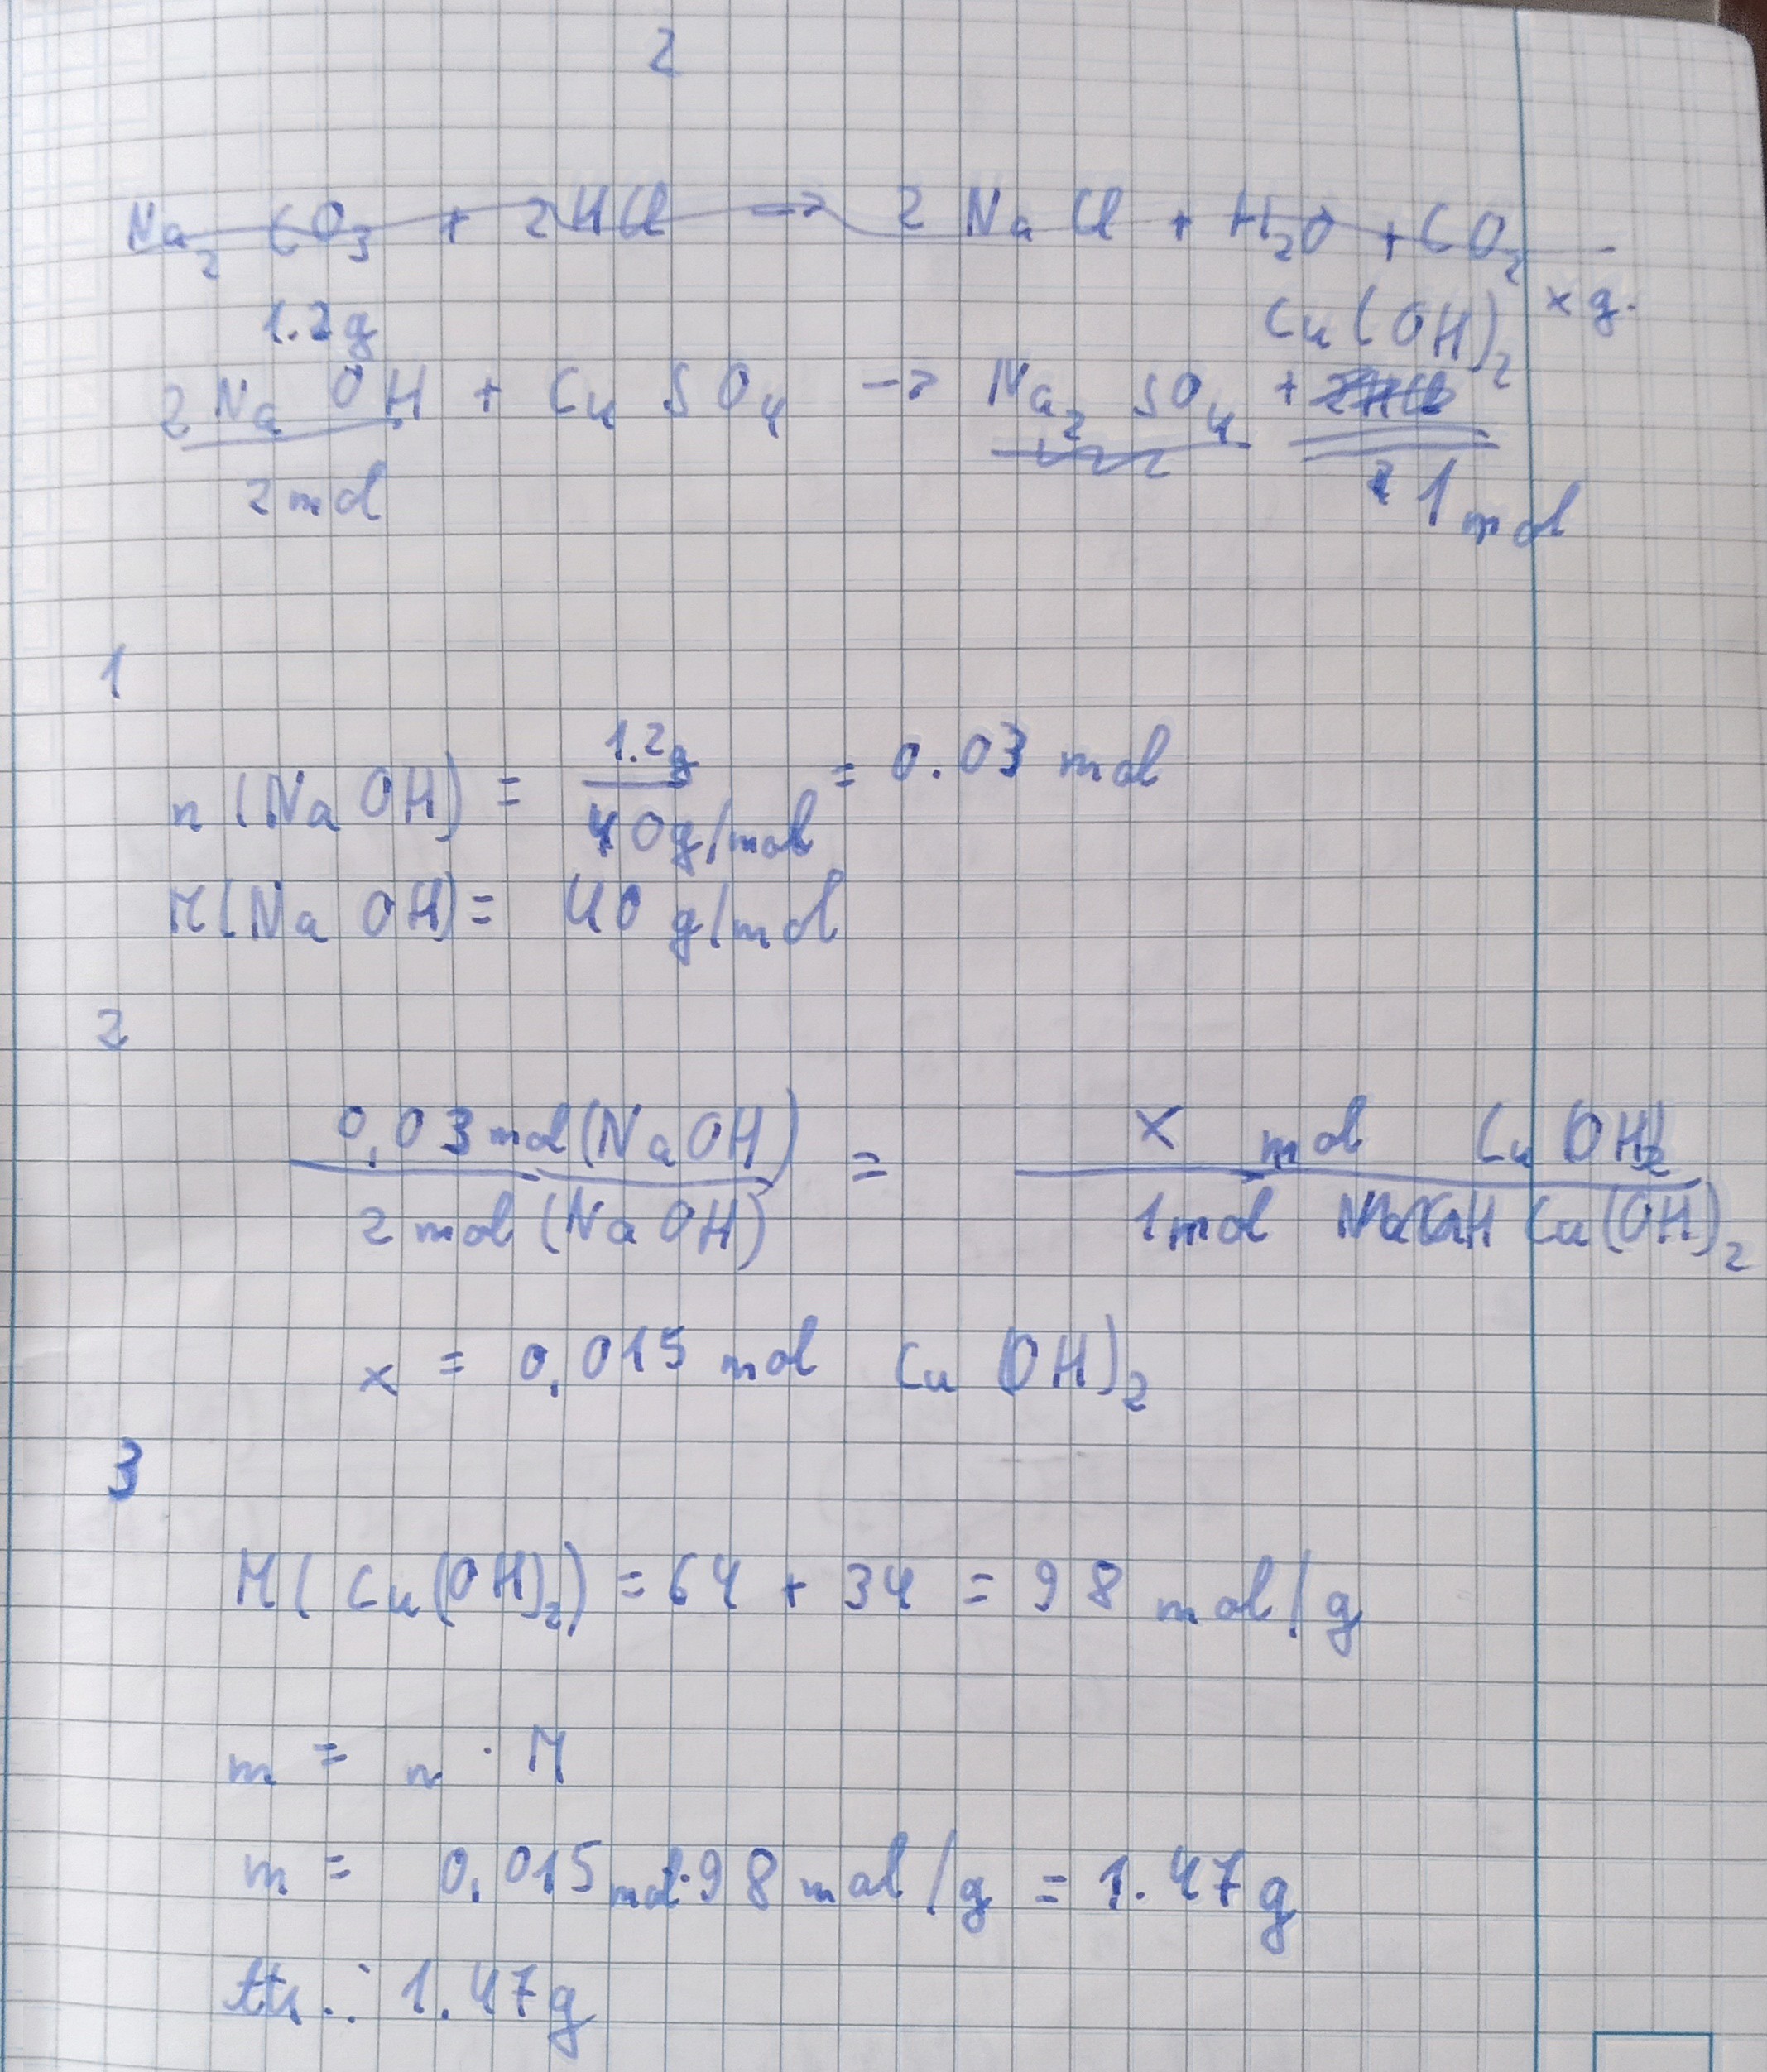 2
Na₂ CO₃ + 2HCl → 2 NaCl + H₂O + CO₂
1.2g Cu(OH)₂ x g.
2 Na OH + Cu SO₄ → Na₂ SO₄ +
2 mol 1 mol
1
n (Na OH) = 1.2g / 40g/mol = 0.03 mol
M(Na OH) = 40 g/mol
2
0,03 mol (NaOH) / 2 mol (NaOH) = x mol Cu(OH)₂ / 1 mol Cu(OH)₂
x = 0,015 mol Cu(OH)₂
3
M( Cu(OH)₂) = 64 + 34 = 98 mol/g
m = n · M
m = 0,015 mol·98 mol/g = 1.47g
Ats.: 1.47g